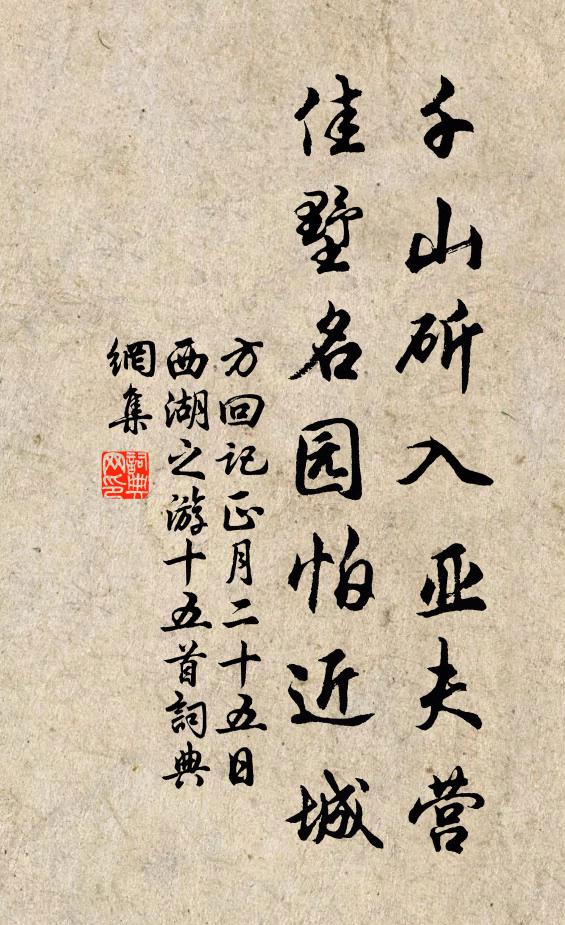 千山斫入亚夫营
佳墅名园怕近城
方回记正月二十五日
西湖之游十五首詞典
網集
詞典網印